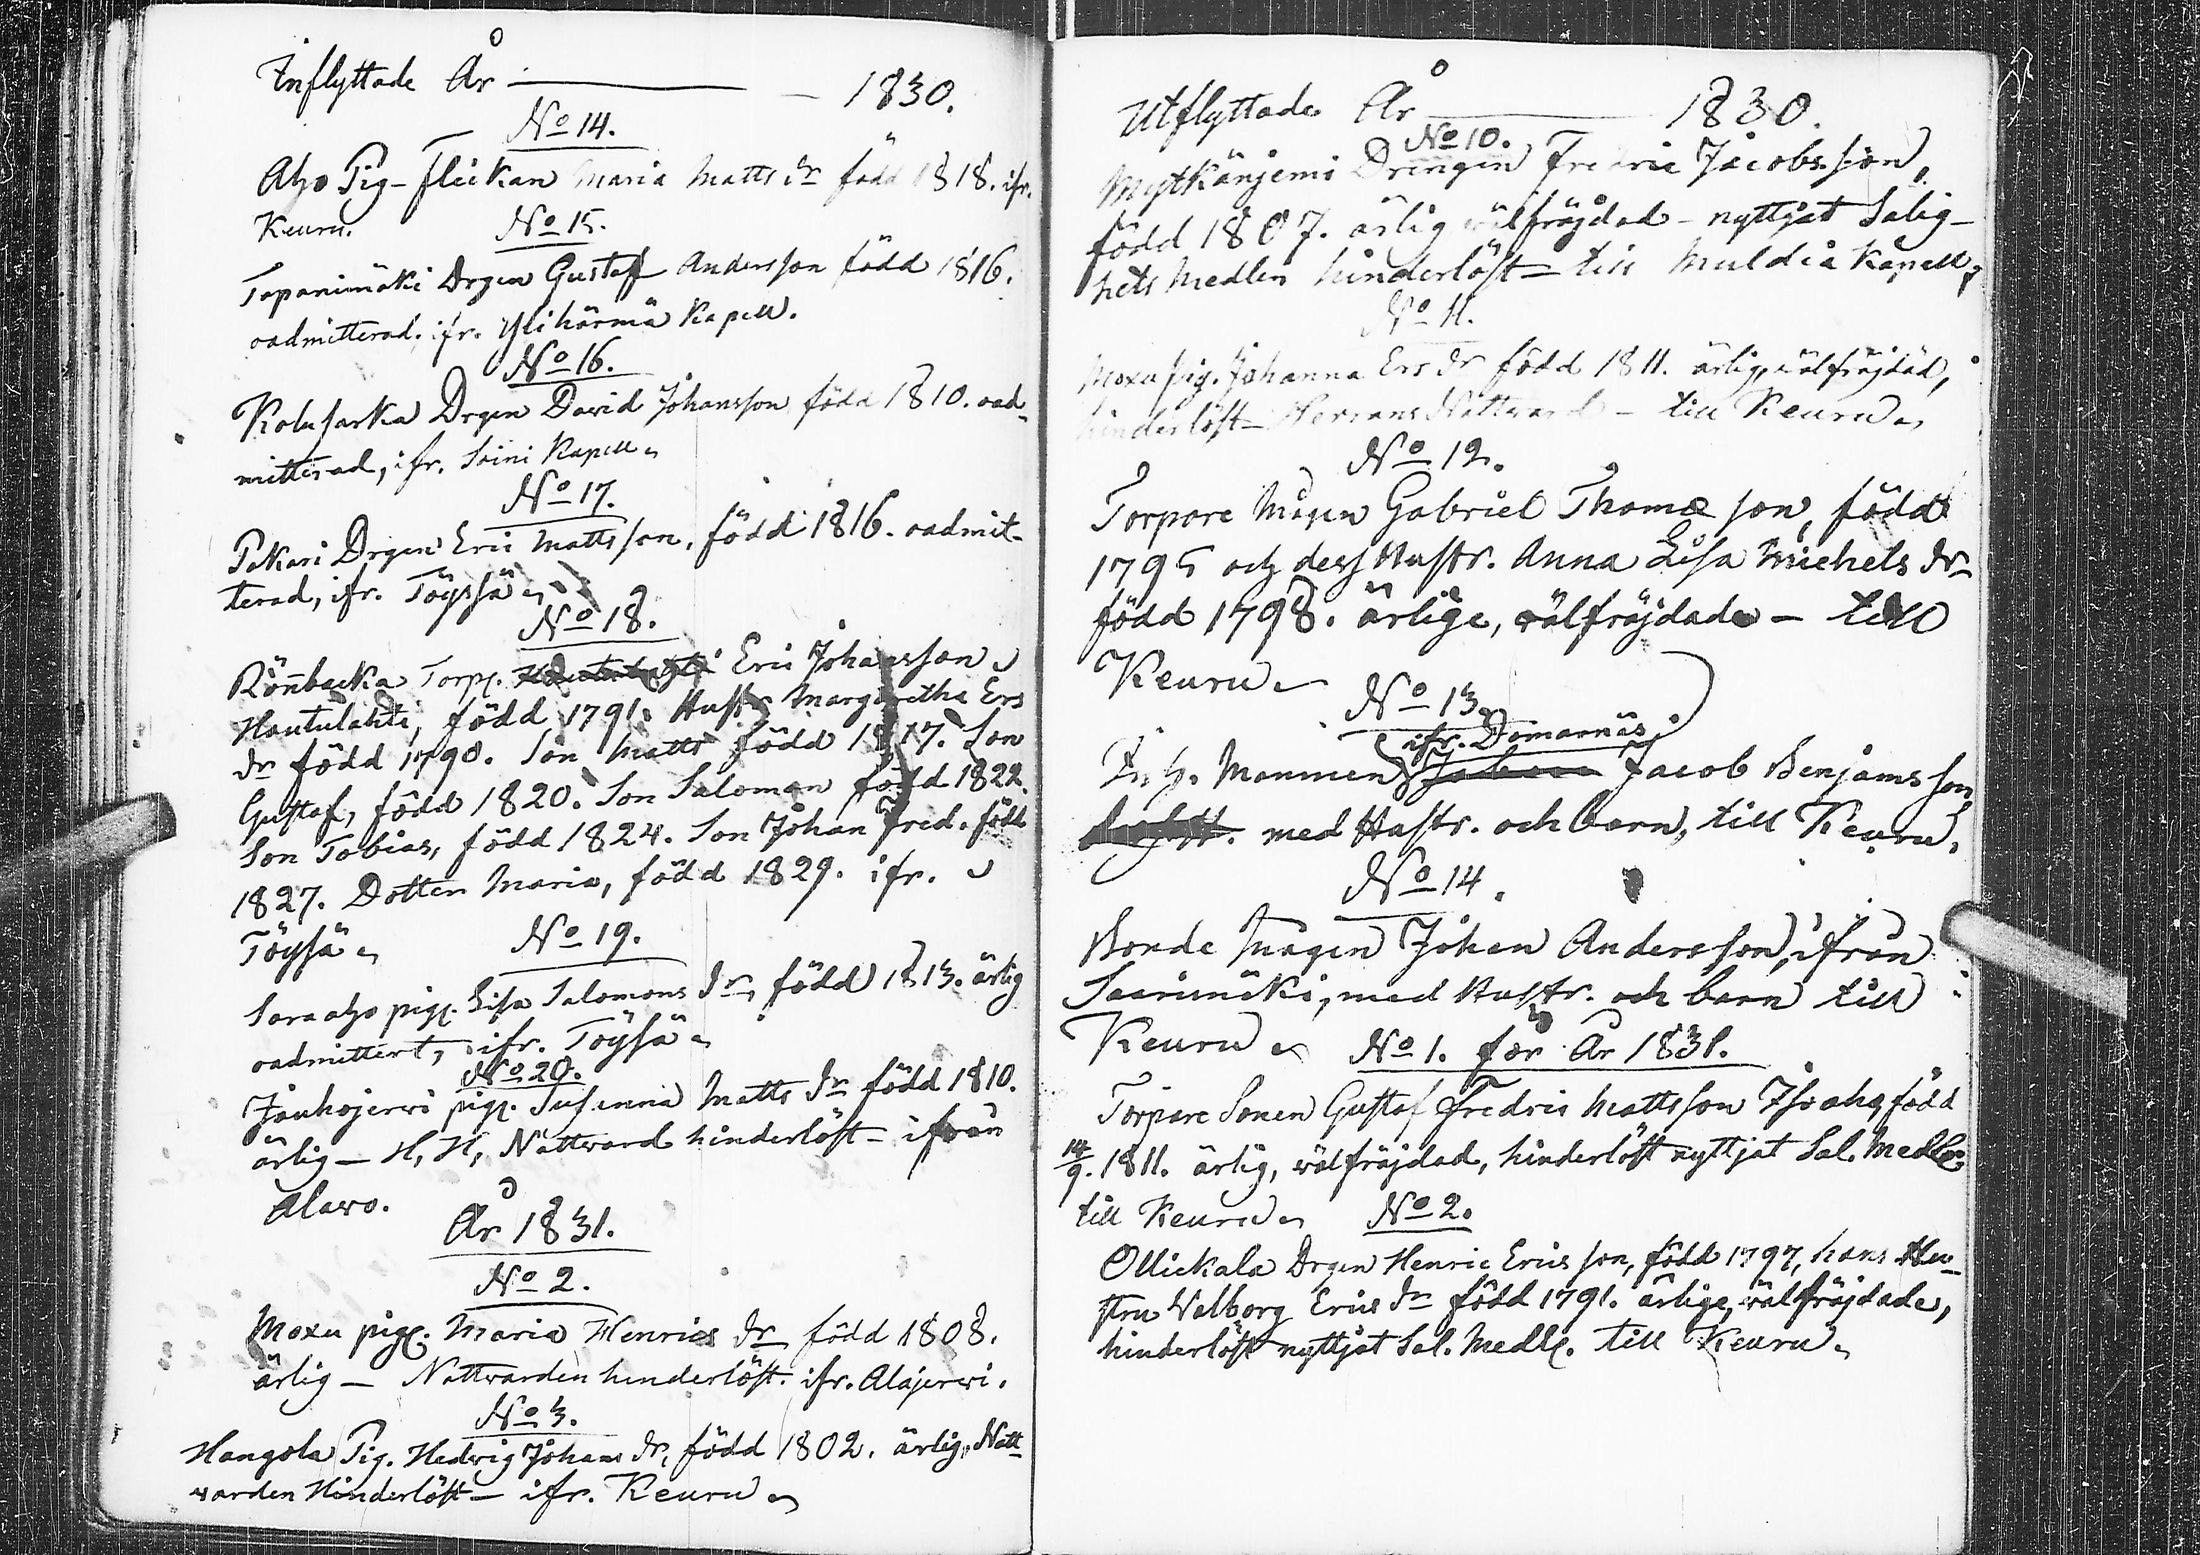 Inflyttade År — 1830.
No 14.
Aho Pig-flickan Maria Matts dr född 1818. ifr.
Keuru.
No 15.
Tapanimäki Drgen Gustaf Andersson född 1816.
oadmitterad, ifr. Ylihärmä Kapell.
No 16.
Kolusarka Drgen David Johansson född 1810. oad-
mitterad, ifr. Soini Kapell
No 17.
Pakari Drgen Eric Mattsson, född 1816. oadmit-
terad, ifr. Töysä
No 18.
Rönnbacka Torp. Eric Johansson
Hautulahti, född 1791. Hustr Margaretha Ers
dr född 1790. Son Matts född 1817. Son
Gustaf, född 1820. Son Saloman född 1822.
Son Tobias, född 1824. Son Johan Fred. född
1827. Dotter Maria, född 1829. ifr.
Töysä
No 19.
Saraaho pig. Lisa Salomons dr, född 1813. ärlig
oadmittert, ifr. Töysä
No 20.
Jauhojerwi pig. Susanna Matts dr född 1810.
ärlig — H, H, Nattward hinderlöst — ifrån
Alawo.
År 1831.
No 2.
Moxu pig. Maria Henrics dr född 1808.
ärlig — Nattwarden hinderlöst. ifr. Alajerwi.
No 3.
Hangola Pig. Hedvig Johans dr, född 1802. ärlig, Natt-
warden Hinderlöst — ifr. Keuru
Utflyttade År — 1830.
No 10.
Mytkänjemi Drengen Fredric Jacobsson,
född 1807. ärlig wälfräjdad — nyttjat Salig-
hets Medlen hinderlöst — till Muldia Kapell,
No 11.
Moxu pig. Johanna Ers dr född 1811. ärlig, wälfräjdad,
hinderlöst Herrans Nattward — till Keuru
No 12.
Torpare Mågen Gabriel Thomæ son, född
1795 och dess Hustr. Anna Lisa Michels dr
född 1798. ärlige, wälfräjdade — till
Keuru
No 13.
ifr. Domarnäs
Inh. Mannen Jacob Benjamsson,
med Hustr. och barn, till Keuru.
No 14.
Bonde Mågen Johan Andersson, ifrån
Saarimäki, med Hustr. och barn till
Keuru
No 1. för År 1831.
Torpare Sonen Gustaf Fredric Mattsson Isoaho född
14/9. 1811. ärlig, wälfräjdad, hinderlöst nyttjat Sal. Medlen
till Keuru
No 2.
Ollickala Drgen Henric Ericsson, född 1797, hans Hu-
stru Walborg Erics dr född 1791. ärlige, wälfräjdade,
hinderlöst nyttjat Sal. Medl. till Keuru